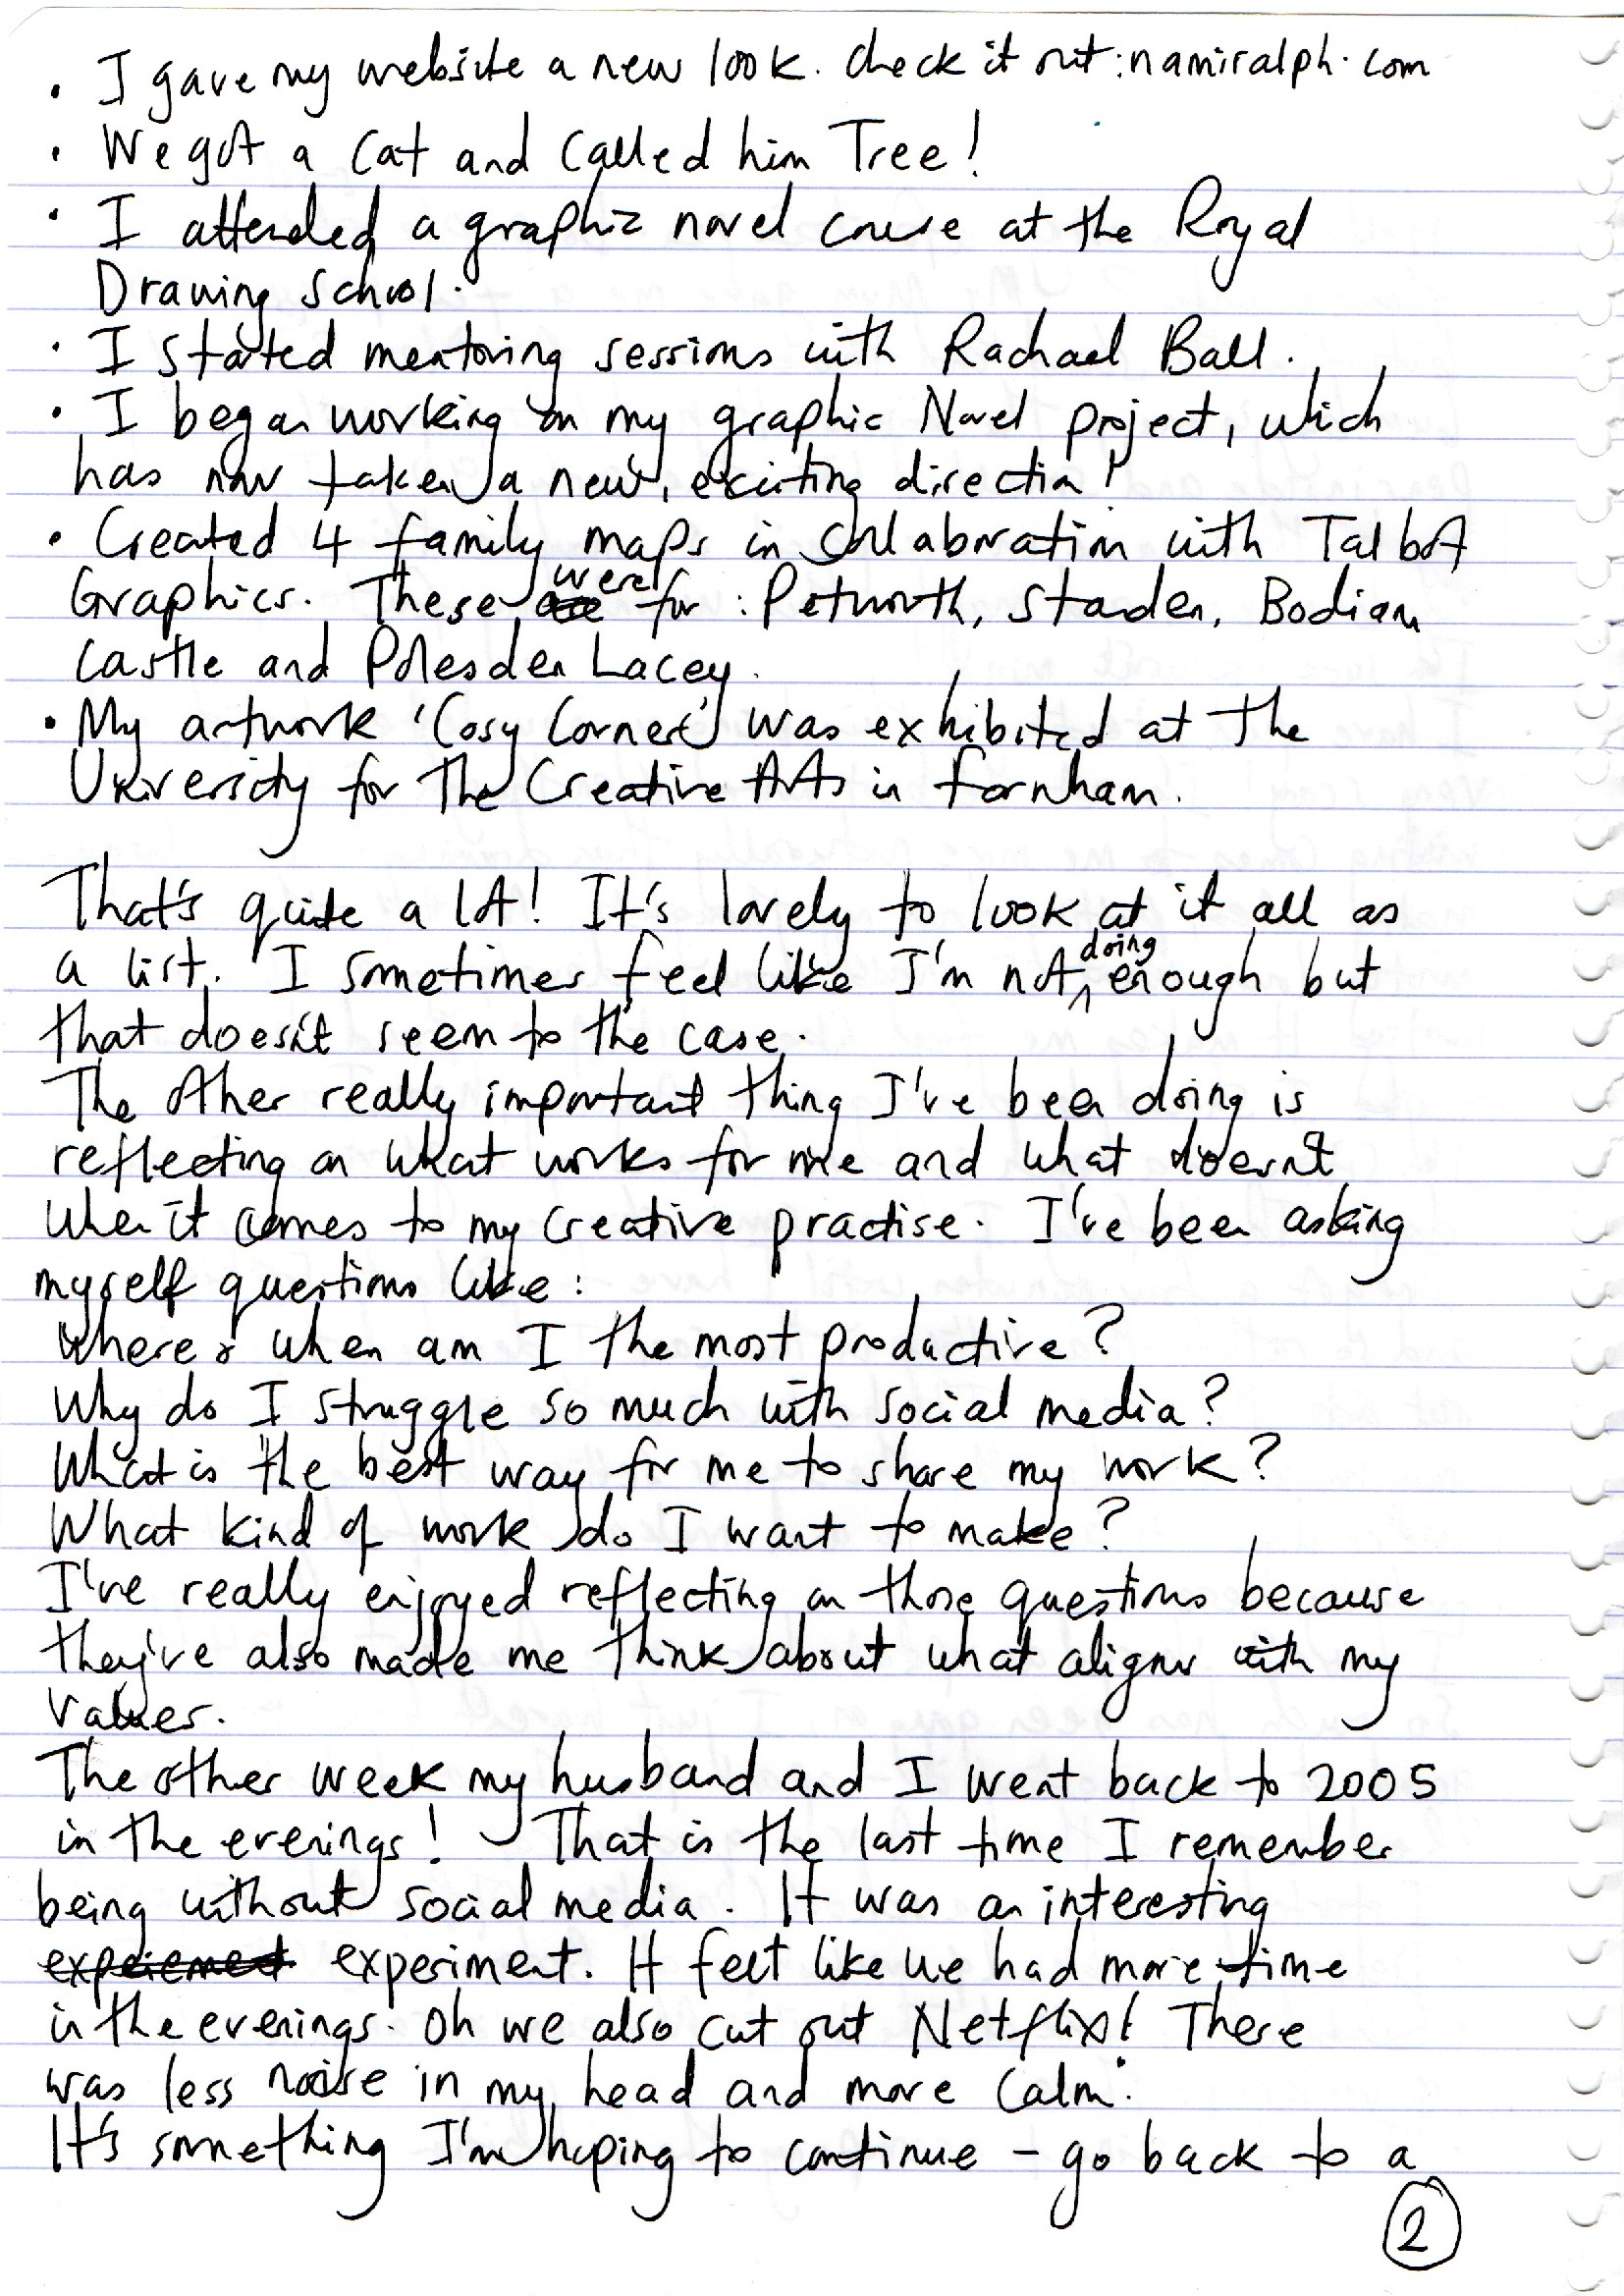 • I gave my website a new look. Check it out: namiralph.com
• We got a cat and called him Tree!
• I attended a graphic novel course at the Royal
Drawing School.
• I started mentoring sessions with Rachael Ball.
• I began working on my graphic Novel project, which
has now taken a new, exciting direction!
• Created 4 family maps in collaboration with Talbot
Graphics. These were for: Petworth, Standen, Bodiam
Castle and Polesden Lacey.
• My artwork 'Cosy Corner' was exhibited at the
University for the Creative Arts in Farnham.
That's quite a lot! It's lovely to look at it all as
a list. I sometimes feel like I'm not doing enough but
that doesn't seem to the case.
The other really important thing I've been doing is
reflecting on what works for me and what doesn't
when it comes to my creative practise. I've been asking
myself questions like:
Where & when am I the most productive?
Why do I struggle so much with social media?
What is the best way for me to share my work?
What kind of work do I want to make?
I've really enjoyed reflecting on those questions because
they've also made me think about what aligns with my
values.
The other week my husband and I went back to 2005
in the evenings! That is the last time I remember
being without social media. It was an interesting
experiment. It felt like we had more time
in the evenings. Oh we also cut out Netflix! There
was less noise in my head and more calm.
It's something I'm hoping to continue - go back to a
2